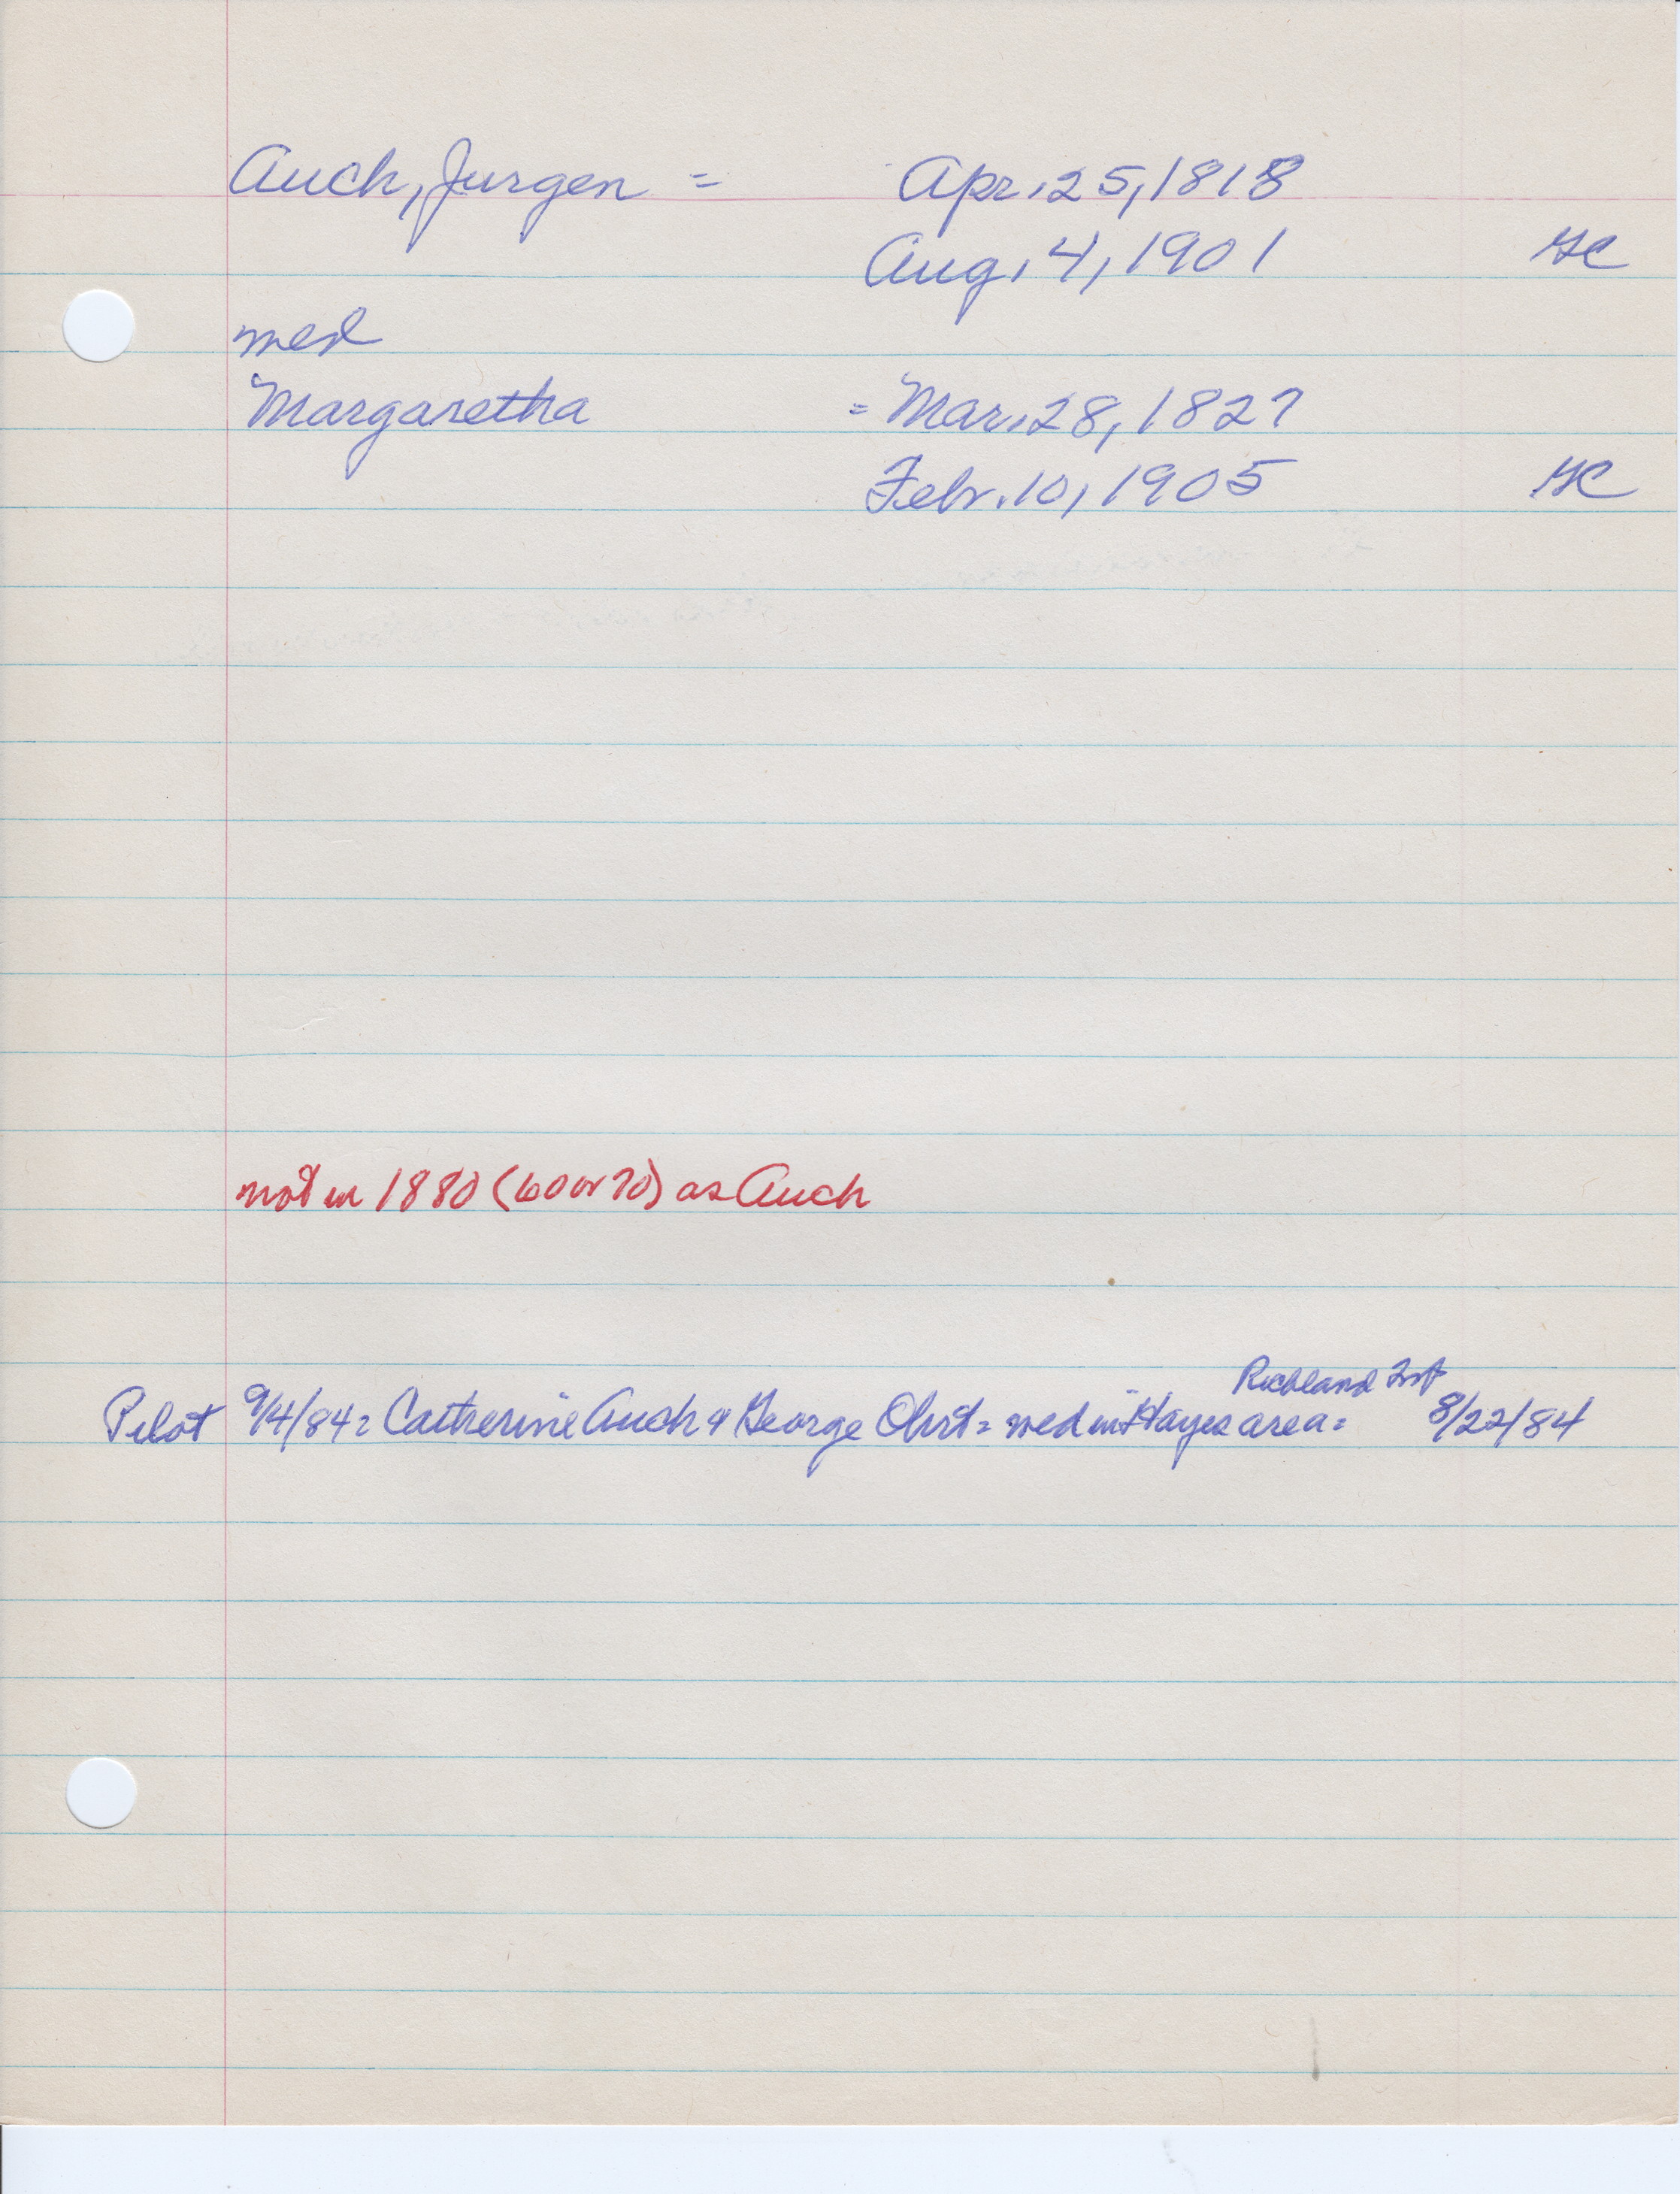 Auch, Jurgen = Apr. 25, 1818
Aug. 4, 1901 GC
med
Margaretha = Mar. 28, 1827
Febr. 10, 1905 GC
not in 1880 (60 or 70) as Auch
Richland Tnsp
Pilot 9/4/84 = Catherine Auch & George Ohrt = wed in Hayes area = 8/22/84